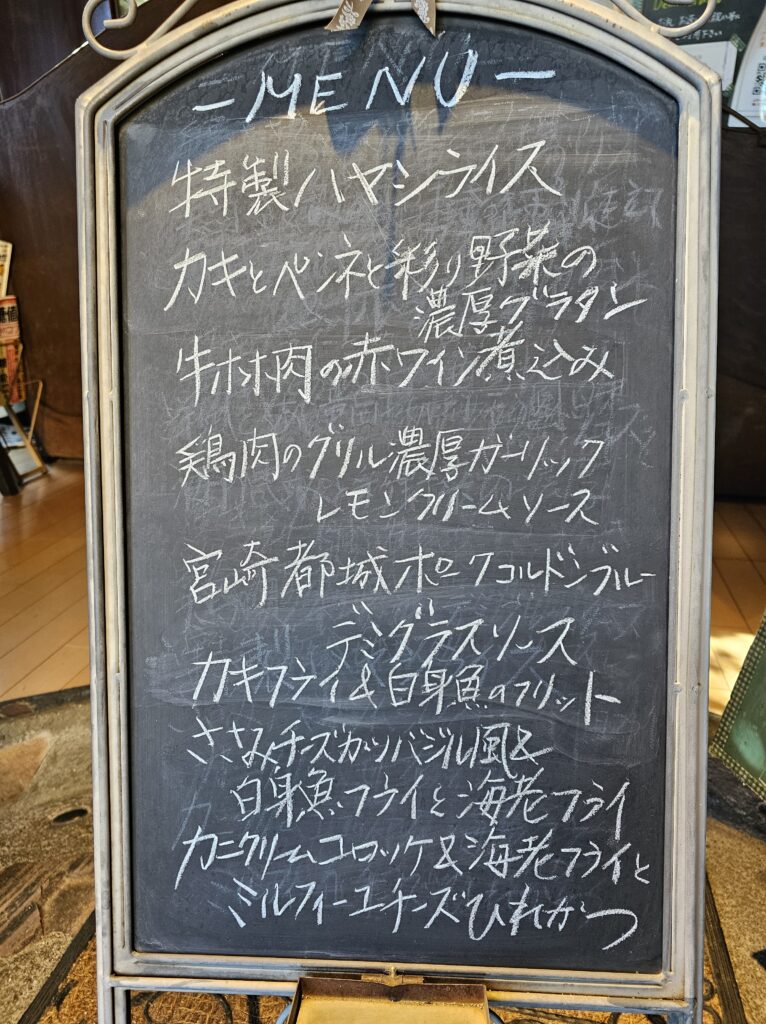 - MENU -
特製ハヤシライス
カキとペンネと彩り野菜の
濃厚グラタン
牛ホホ肉の赤ワイン煮込み
鶏肉のグリル濃厚ガーリック
レモンクリームソース
宮崎都城ポークコルドンブルー
デミグラスソース
カキフライ&白身魚のフリット
ささみチーズカツバジル風&
白身魚フライと海老フライ
カニクリームコロッケ&海老フライと
ミルフィーユチーズひれかつ